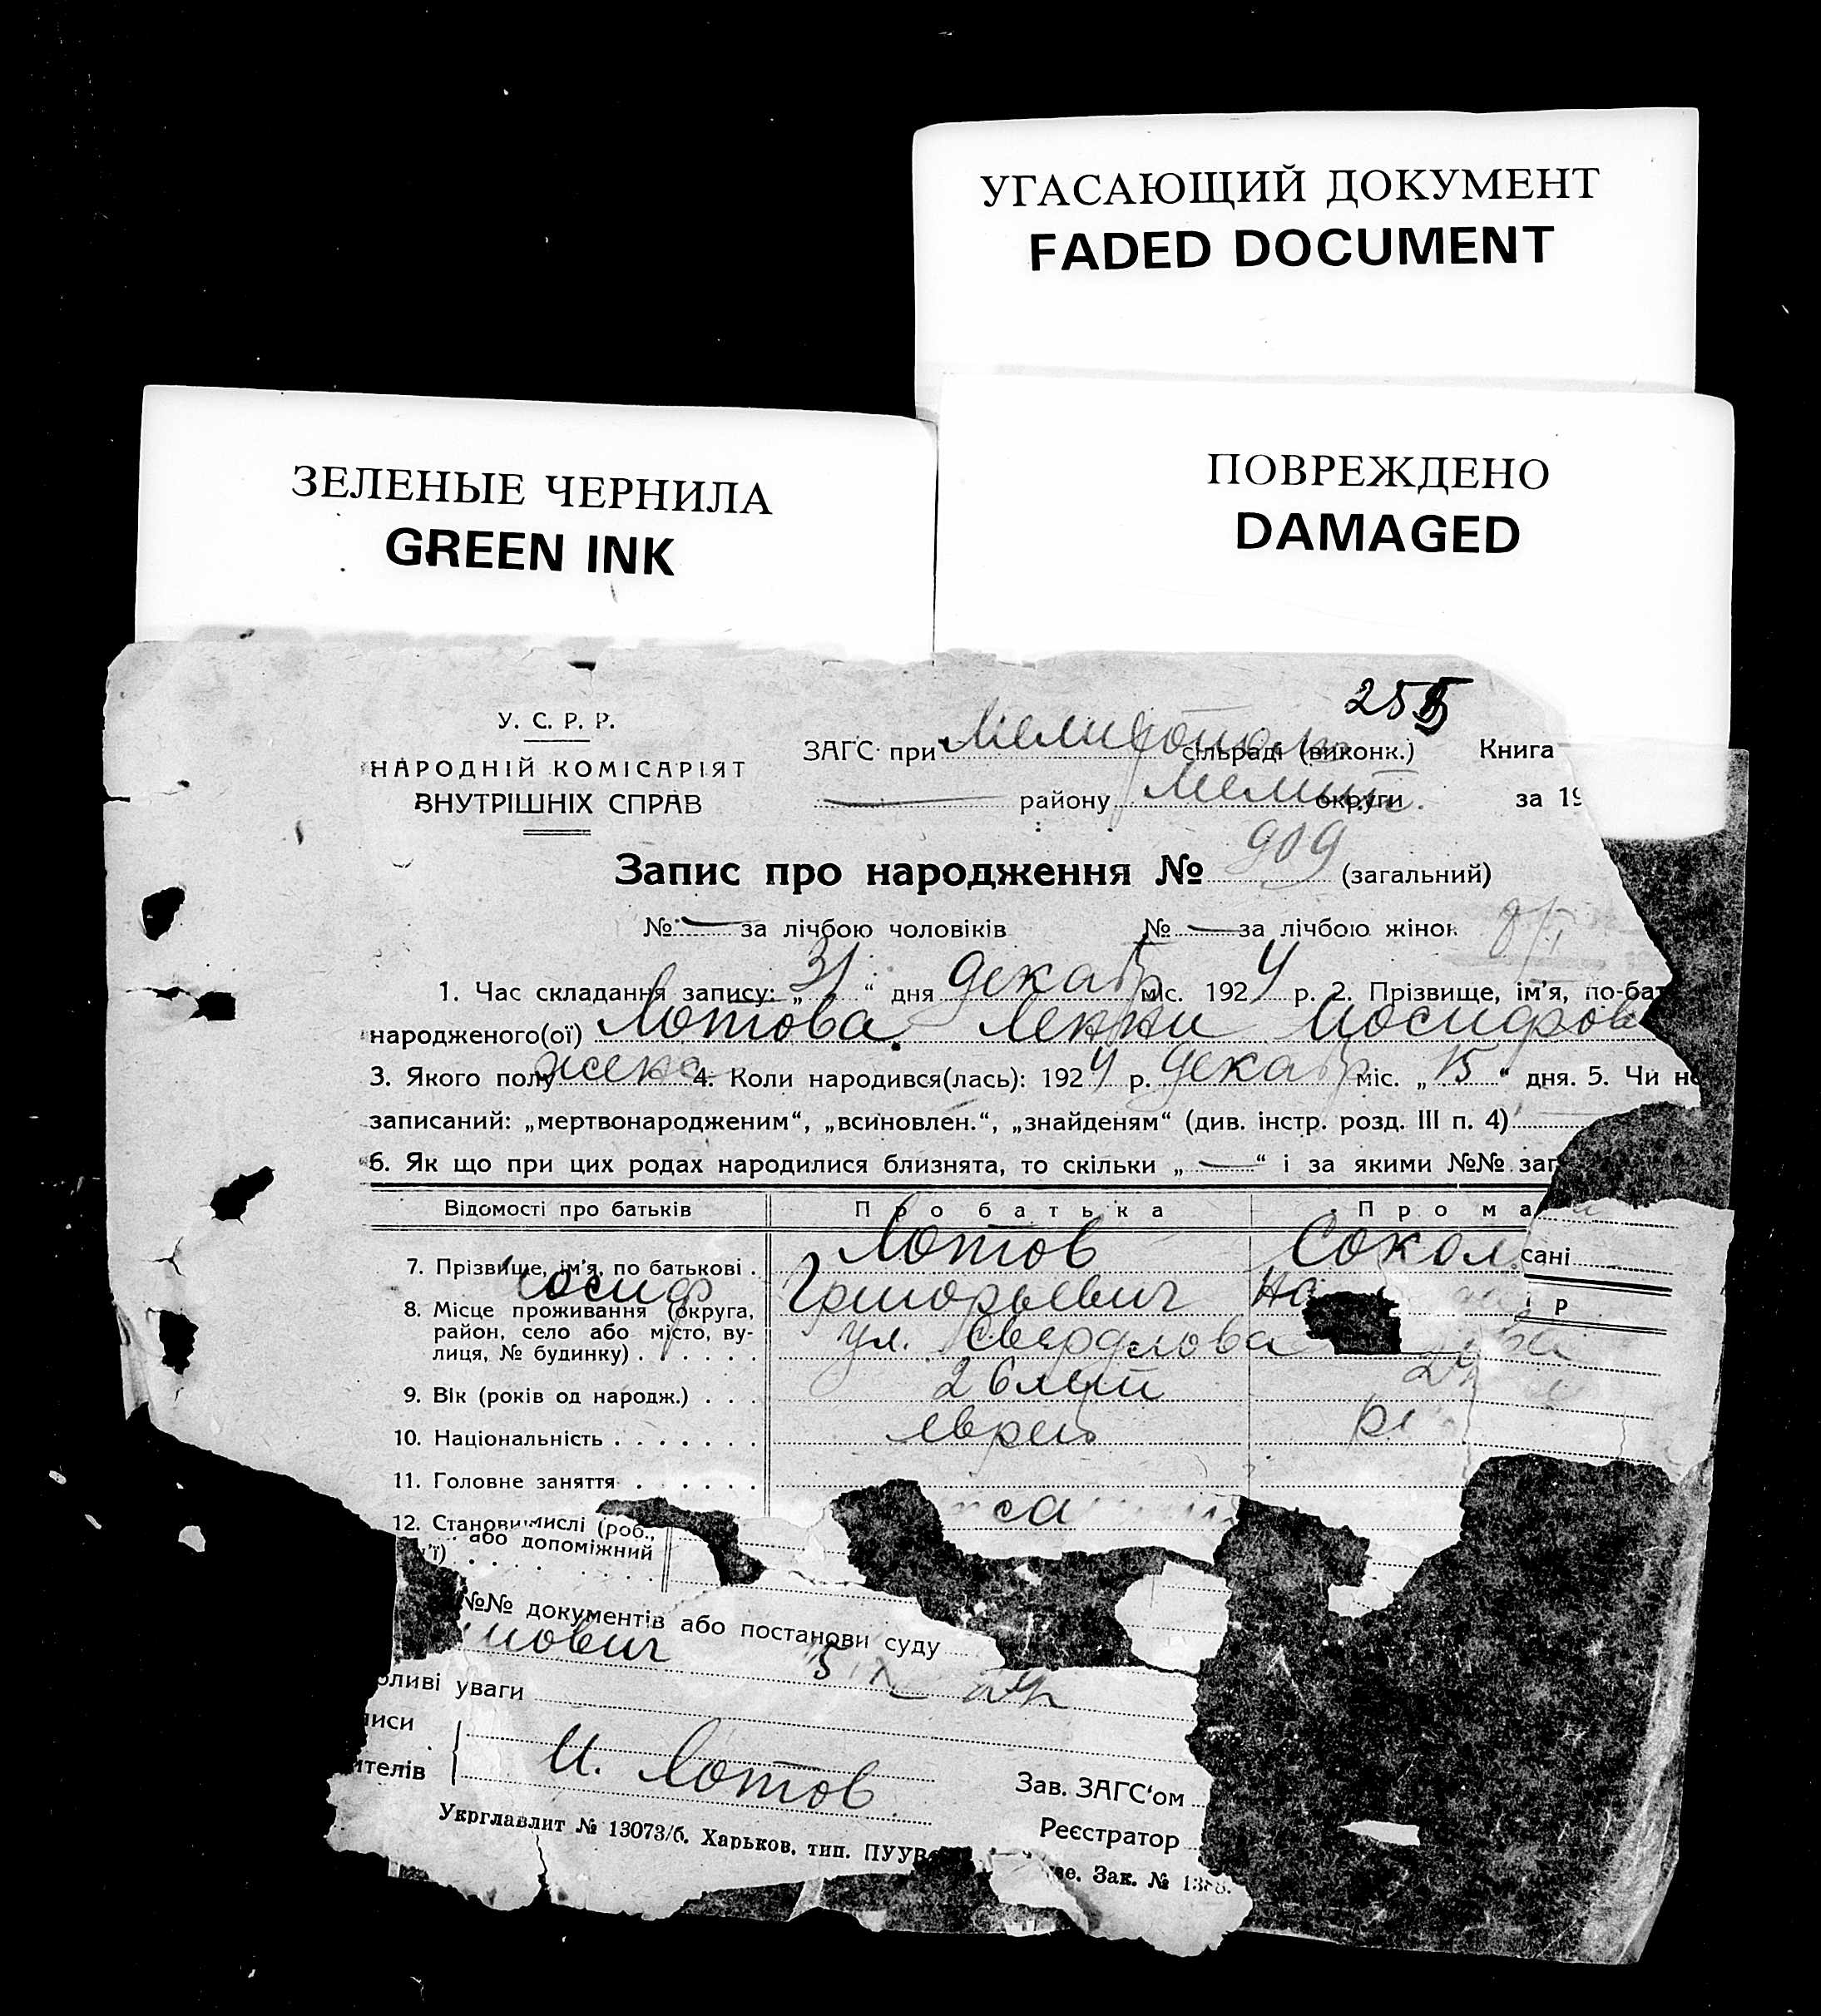 УГАСАЮЩИЙ ДОКУМЕНТ
FADED DOCUMENT
ЗЕЛЕНЫЕ ЧЕРНИЛА
GREEN INK
ПОВРЕЖДЕНО
DAMAGED
У. С. Р. Р.
НАРОДНІЙ КОМІСАРІЯТ
ВНУТРІШНІХ СПРАВ
ЗАГС при сільраді (виконк.) Книга
району Мелит. округи за 19
Запис про народження № 909 (загальний)
№ — за лічбою чоловіків № — за лічбою жінок
1. Час складання запису: „31“ дня декабр міс. 1924 р. 2. Прізвище, ім'я, по-бат
народженого(ої) Лотова Ленни Иосифов
3. Якого полу жен 4. Коли народився(лась): 1924 р. декабр міс. „15“ дня. 5. Чи не
записаний: „мертвонародженим“, „всиновлен.“, „знайденям“ (див. інстр. розд. III п. 4)
6. Як що при цих родах народилися близнята, то скільки „—“ і за якими №№ зап
Відомості про батьків Про батька Про ма
7. Прізвище, ім'я, по батькові . Лотов Сокол сані
Иосиф Григорьевич На р
8. Місце проживання (округа,
район, село або місто, ву-
лиця, № будинку) . . . . . . ул. Свердлова
9. Вік (років од народж.) . . . 26 лет
10. Національність . . . . . . . еврей
11. Головне заняття . . . . . .
12. Станови мислі (роб.,
або допоміжний
'ї) . . . . . . . . .
№№ документів або постанови суду
ович 15
ливі уваги
писи
ителів И. Лотов
Зав. ЗАГС'ом
Реєстратор
Укрглавлит № 13073/б. Харьков, тип. ПУУВ Зак. № 138